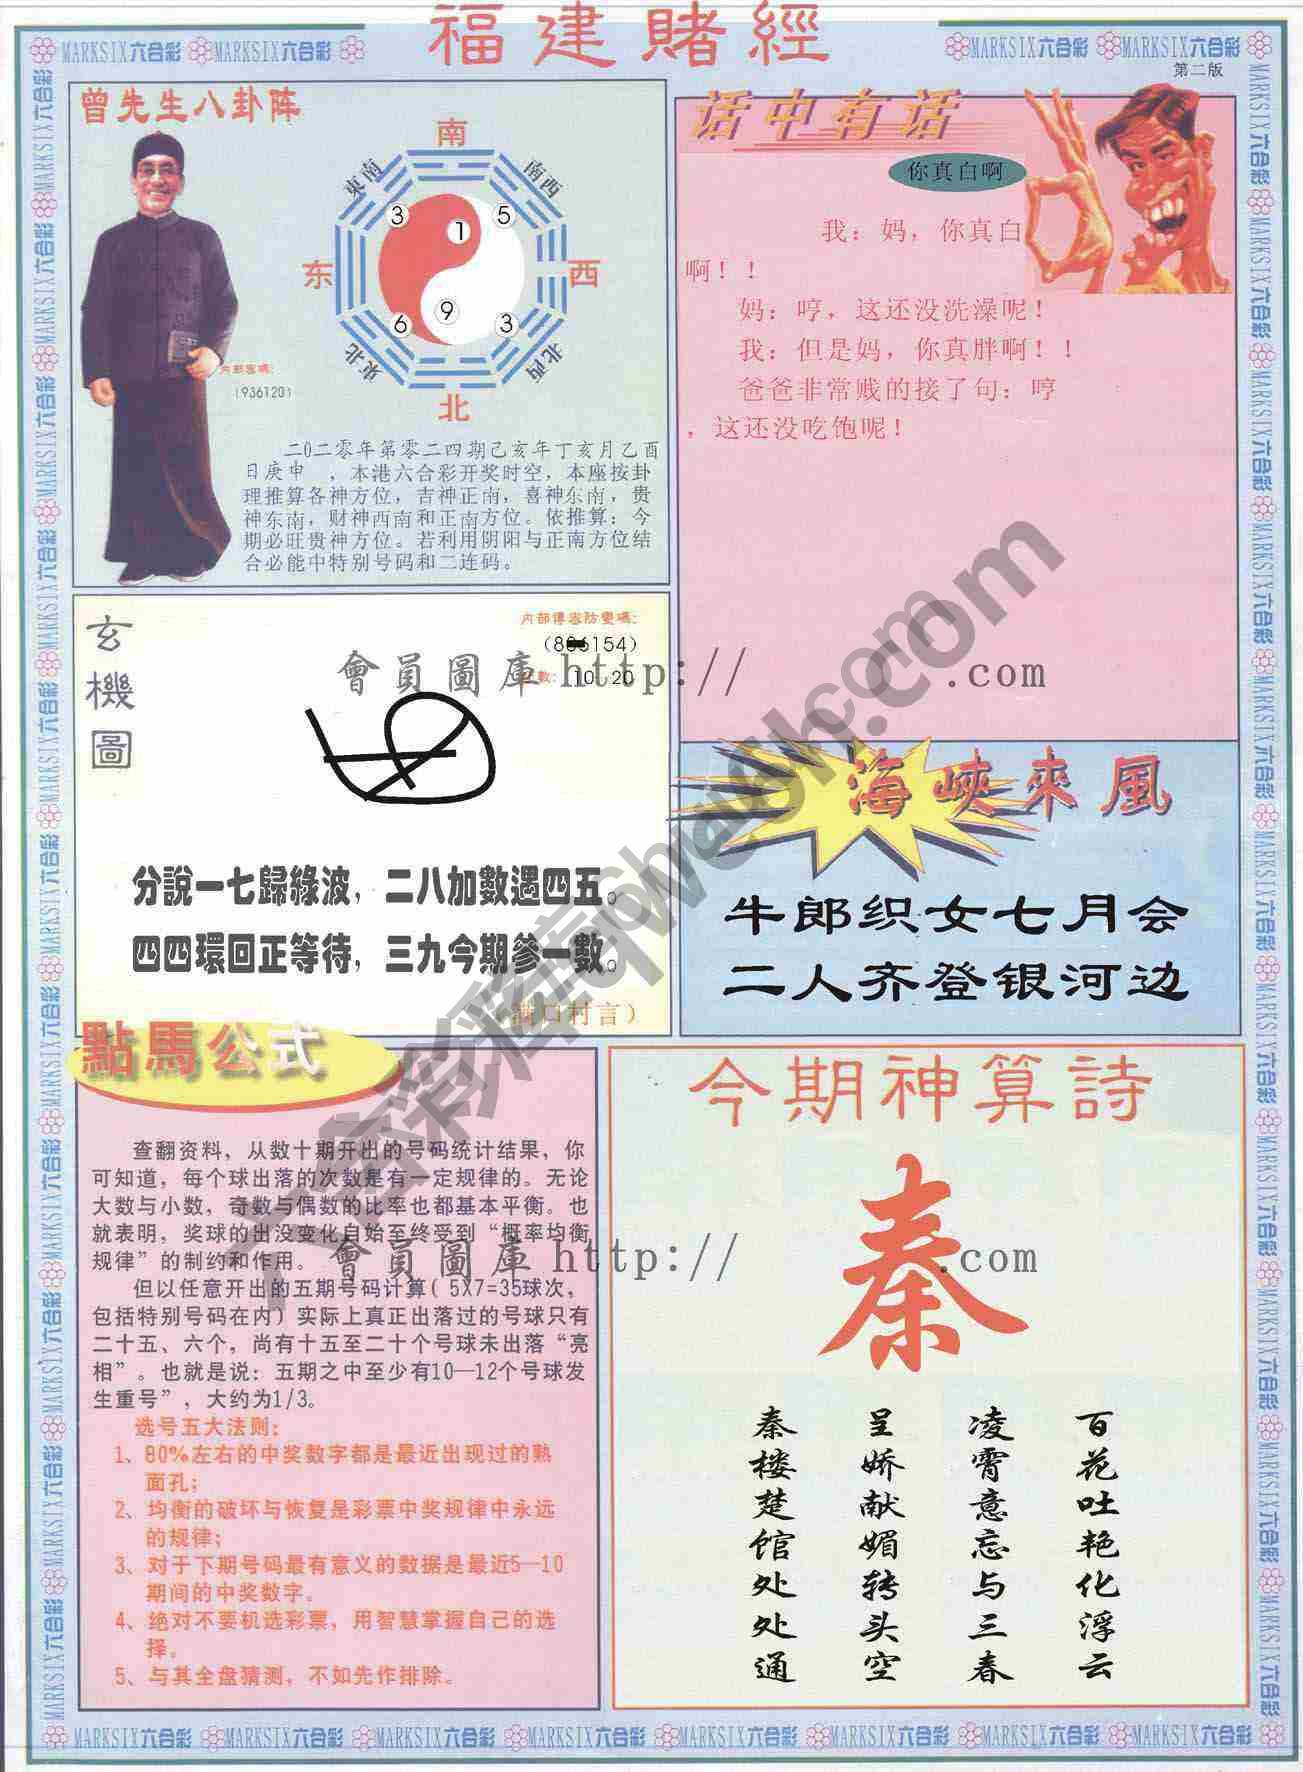 福建賭經
MARKSIX六合彩 MARKSIX六合彩
MARKSIX六合彩 MARKSIX六合彩
第二版
曾先生八卦阵
南
東南
南西
3
1
5
东
西
6
9
3
東北
北西
北
内部密碼:
(936120)
二0二零年第零二四期己亥年丁亥月乙酉
日庚申 ,本港六合彩开奖时空,本座按卦
理推算各神方位,吉神正南,喜神东南,贵
神东南,财神西南和正南方位。依推算:今
期必旺贵神方位。若利用阴阳与正南方位结
合必能中特别号码和二连码。
话中有话
你真白啊
我:妈,你真白
啊!!
妈:哼,这还没洗澡呢!
我:但是妈,你真胖啊!!
爸爸非常贱的接了句:哼
,这还没吃饱呢!
玄機圖
内部傳密防變碼:
154)
數: 10 20
會員圖庫 http:// .com
分說一七歸綠波,二八加數遇四五。
四四環回正等待,三九今期參一數。
(满口村言)
海峽來風
牛郎织女七月会
二人齐登银河边
點馬公式
查翻资料,从数十期开出的号码统计结果,你
可知道,每个球出落的次数是有一定规律的。无论
大数与小数,奇数与偶数的比率也都基本平衡。也
就表明,奖球的出没变化自始至终受到“概率均衡
规律”的制约和作用。
但以任意开出的五期号码计算( 5X7=35球次,
包括特别号码在内)实际上真正出落过的号球只有
二十五、六个,尚有十五至二十个号球未出落“亮
相”。也就是说:五期之中至少有10—12个号球发
生重号”,大约为1/3。
选号五大法则:
1、80%左右的中奖数字都是最近出现过的熟
面孔;
2、均衡的破坏与恢复是彩票中奖规律中永远
的规律;
3、对于下期号码最有意义的数据是最近5—10
期间的中奖数字。
4、绝对不要机选彩票,用智慧掌握自己的选
择。
5、与其全盘猜测,不如先作排除。
會員圖庫 http:// .com
今期神算詩
秦
百花吐艳化浮云
凌霄意忘与三春
呈娇献媚转头空
秦楼楚馆处处通
MARKSIX六合彩 MARKSIX六合彩 MARKSIX六合彩 MARKSIX六合彩 MARKSIX六合彩 MARKSIX六合彩 MARKSIX六合彩 MARKSIX六合彩